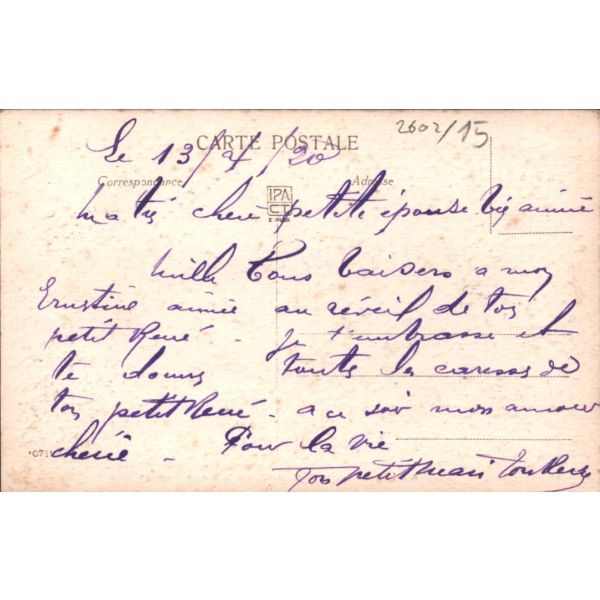 2602/15
CARTE POSTALE
Le 13/4/20
Correspondance
Adresse
IPA
CT
Ma très chère petite épouse bien aimée
Mille bons baisers a mon
Ernestine aimée au réveil de ton
petit René - Je t'embrasse et
te donne toutes les caresses de
ton petit René - a ce soir mon amour
chérie - Pour la vie
Ton petit mari ton René